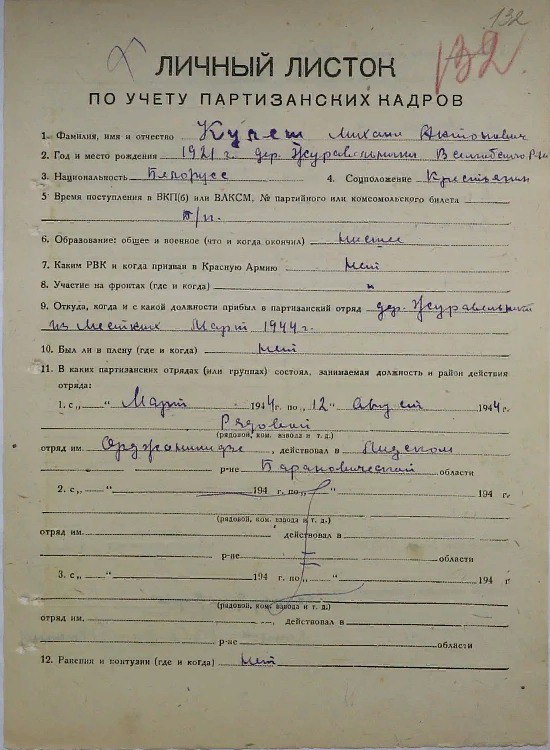 132
132.
ЛИЧНЫЙ ЛИСТОК
ПО УЧЕТУ ПАРТИЗАНСКИХ КАДРОВ
1. Фамилия, имя и отчество Купеш Михаил Антонович
2. Год и место рождения 1921 г. дер.
3. Национальность Белорусс 4. Соцположение Крестьянин
5 Время поступления в ВКП(б) или ВЛКСМ, № партийного или комсомольского билета
б/п.
6. Образование: общее и военное (что и когда окончил) низшее
7. Каким РВК и когда призван в Красную Армию нет
8. Участие на фронтах (где и когда) "
9. Откуда, когда и с какой должности прибыл в партизанский отряд дер.
из местных Март 1944 г.
10. Был ли в плену (где и когда) нет
11. В каких партизанских отрядах (или группах) состоял, занимаемая должность и район действия
отряда:
1. с „ “ Март 1944 г. по „12“ Август 1944 г.
Рядовой
(рядовой, ком. взвода и т. д.)
отряд им. Орджоникидзе, действовал в Лидском
р-не Барановической области
2. с „ “ 194 г. по „ “ 194 г.
(рядовой, ком. взвода и т. д.)
отряд им. действовал в
р-не области
3. с „ “ 194 г. по „ “ 194 г
(рядовой, ком. взвода и т. д.)
отряд им. , действовал в
р-не области
12. Ранения и контузии (где и когда) нет